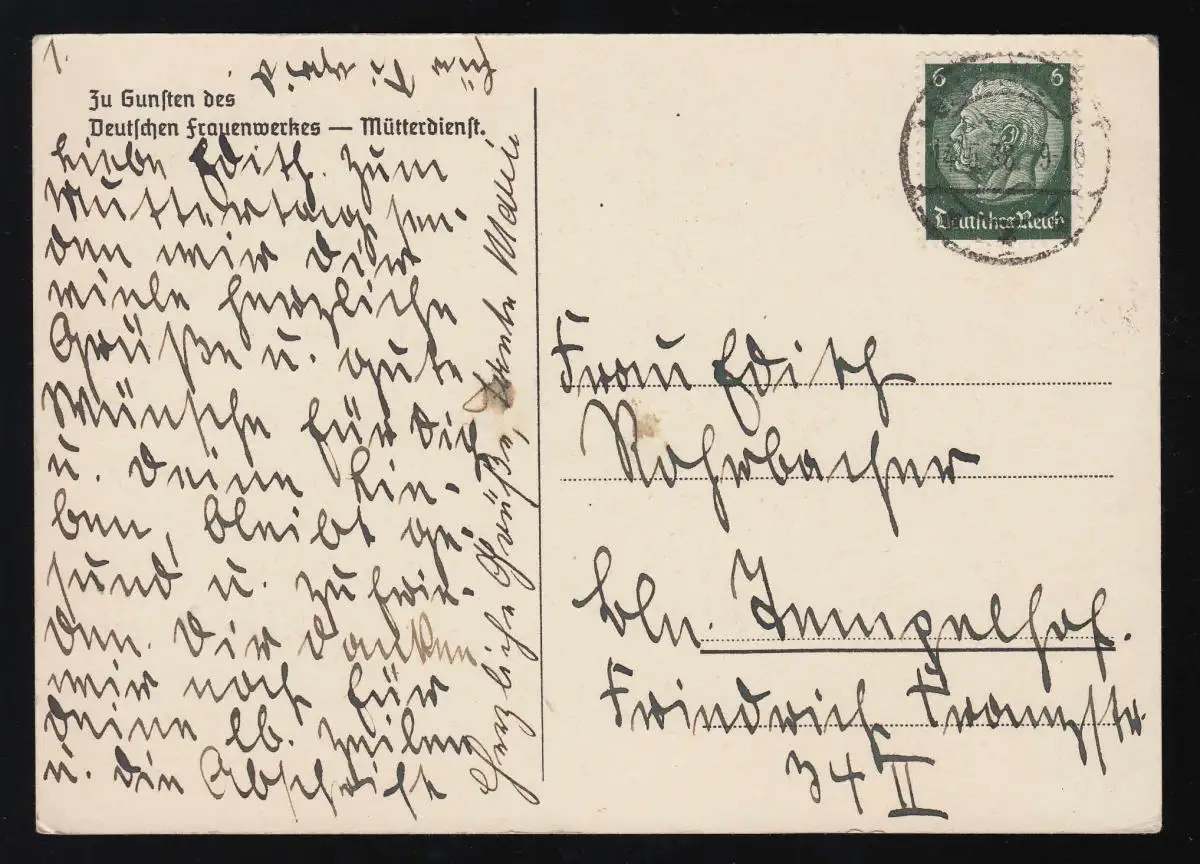 1.
Zu Gunsten des
Deutschen Frauenwerkes — Mütterdienst.
Liebe Edith. Zum
Muttertag sen-
den wir Dir
viele herzliche
Grüße u. gute
Wünsche für Dich
u. Deine Lie-
ben, bleibt ge-
sund u. zufrie-
den. Dir danken
wir noch für
Deine lb. Zeilen
u. die Abschrift
Herzliche Grüße, Tante Marie
6 6
Deutsches Reich
Frau Edith
Rohrbacher
Bln. Tempelhof.
Friedrich Franzstr.
34 II